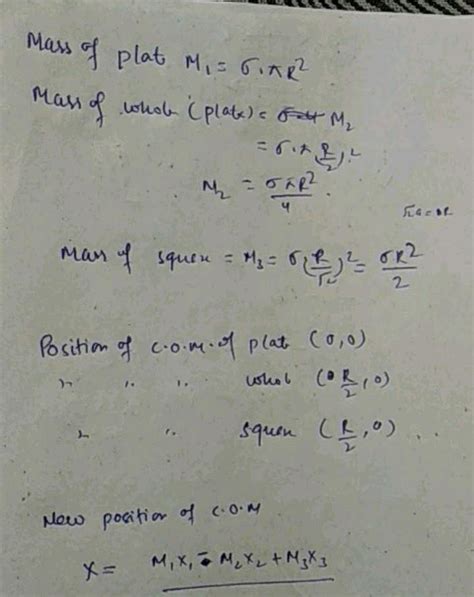 Mass of plat M₁ = σ.πR²
Mass of whole (plate) = M₂
= σ.π(R/2)²
M₂ = σπR²/4 .
Mass of squex = M₃ = σ(R/√2)² = σR²/2
Position of C.O.M. of plat (0,0)
" " " whole (R/2, 0)
" " squex (R/2, 0) ..
New position of C.O.M
X = M₁X₁ - M₂X₂ + M₃X₃